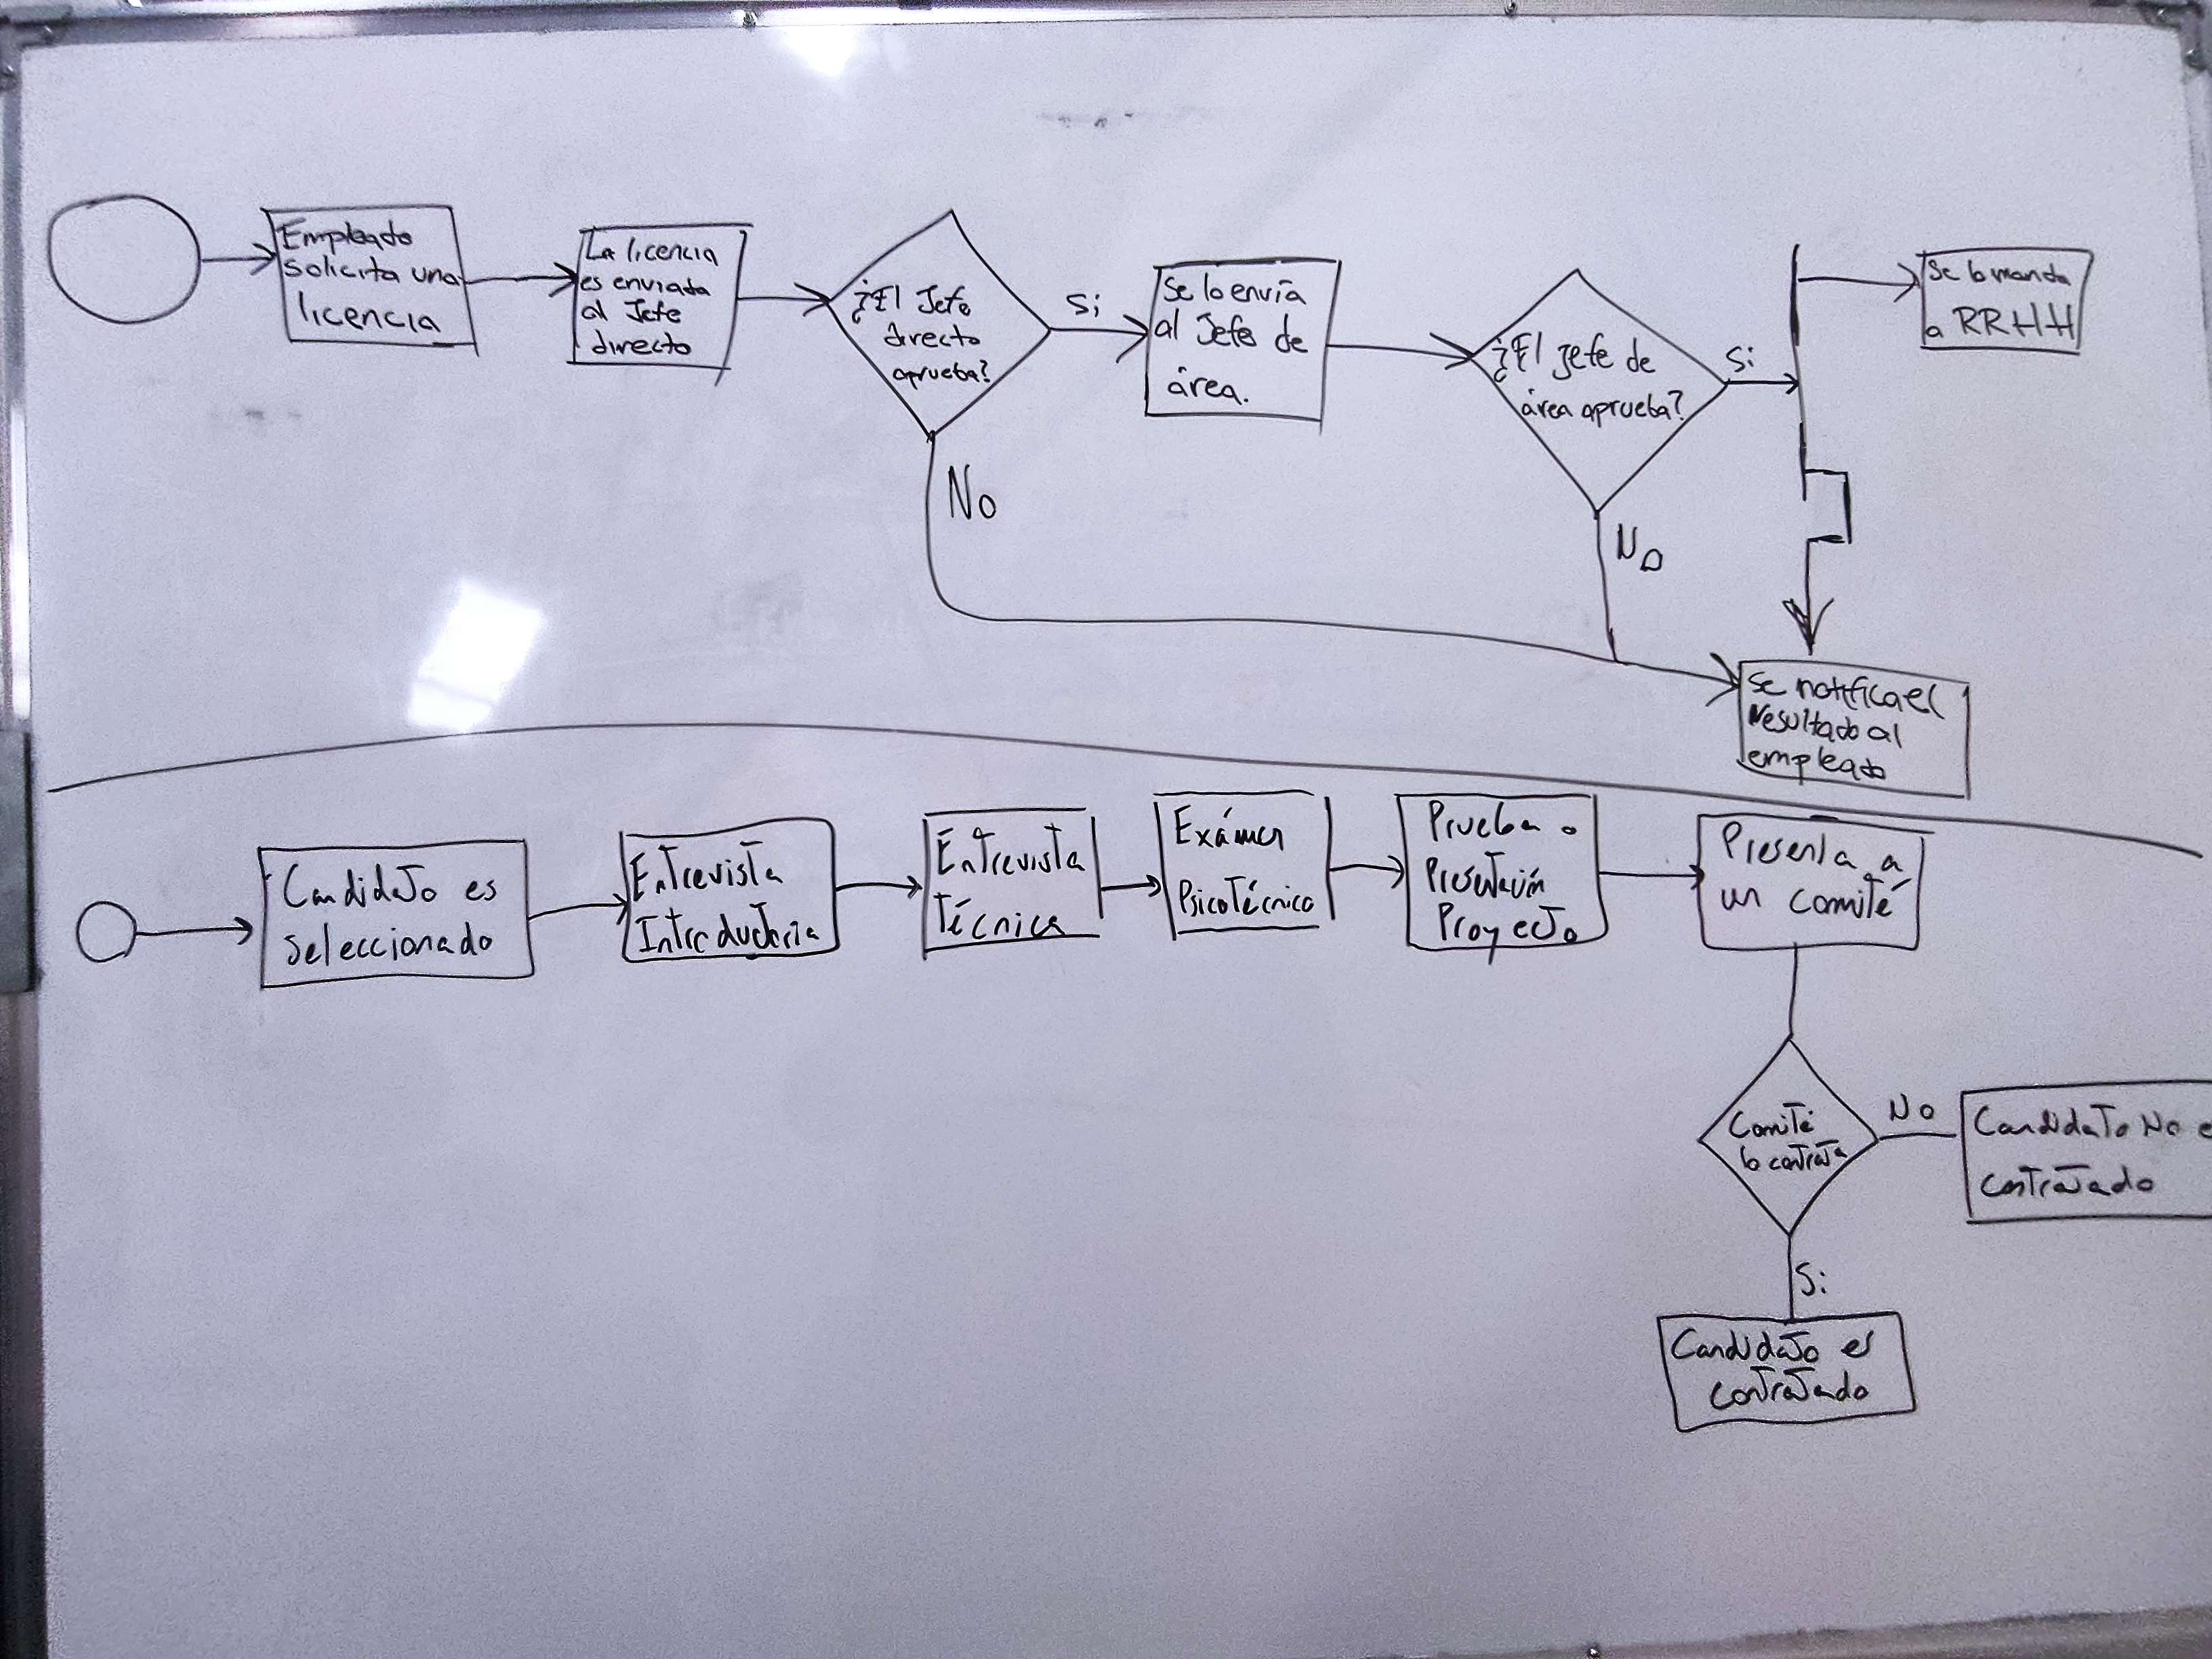 Empleado
solicita una
licencia
La licencia
es enviada
al Jefe
directo
¿El Jefe
directo
aprueba?
Si
No
Se lo envía
al Jefe de
área.
¿El jefe de
área aprueba?
Si
No
Se lo manda
a RRHH
Se notifica el
resultado al
empleado
Candidato es
seleccionado
Entrevista
Introductoria
Entrevista
Técnica
Exámen
Psicotécnico
Prueba o
Presentación
Proyecto
Presenta a
un comité
Comité
lo contrata
No
Candidato No e
contratado
Si
Candidato es
contratado